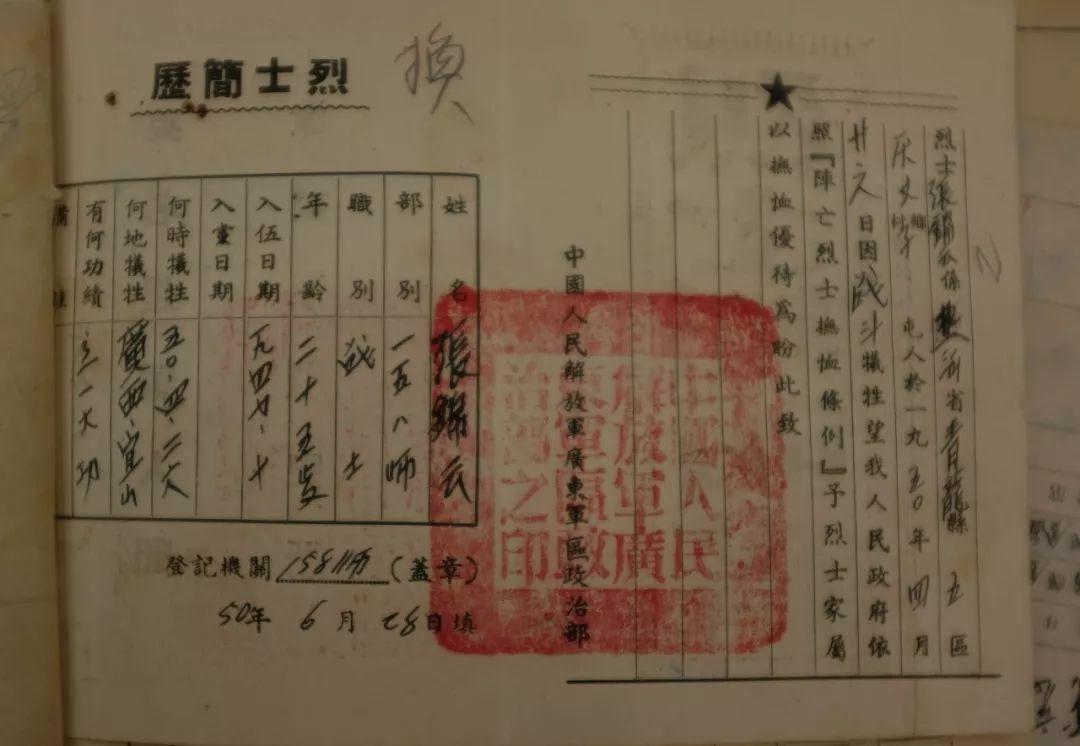 烈士張錦云係熱河省青龍縣五區
村人於一九五0年四月
廿六日因战斗犧牲望我人民政府依
照『陣亡烈士撫恤條例』予烈士家屬
以撫恤優待為盼此致
中國人民解放軍廣東軍區政治部
中國人民
解放軍廣
東軍區政
治部之印
換
烈士簡歷
姓名 張錦云
部別 一五八師
職別 战士
年齡 二十五歲
入伍日期 一九四七、十
入黨日期
何時犧牲 五〇、四、二六
何地犧牲 廣西、宜山
有何功績 立一大功
備註
登記機關 158師 (蓋章)
50年 6月 28日填